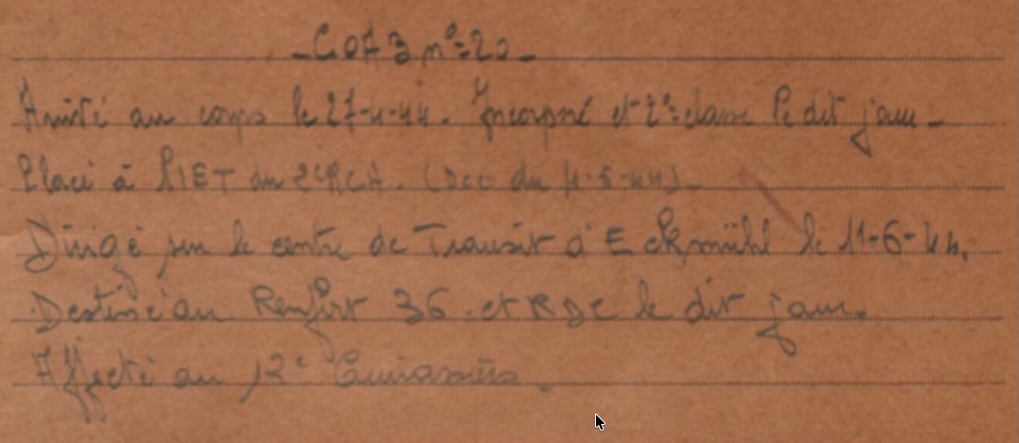 - COA 3 n° = 20 -
Arrivé au corps le 27-4-44. Incorporé et 2e classe le dit jour -
Placé à l'IET du 2e RCA. (Dec du 4-5-44) -
Dirigé sur le centre de Transit d'Eckmühl le 11-6-44.
Destiné au Renfort 36. et RDC le dit jour.
Affecté au 12e Cuirassiers.